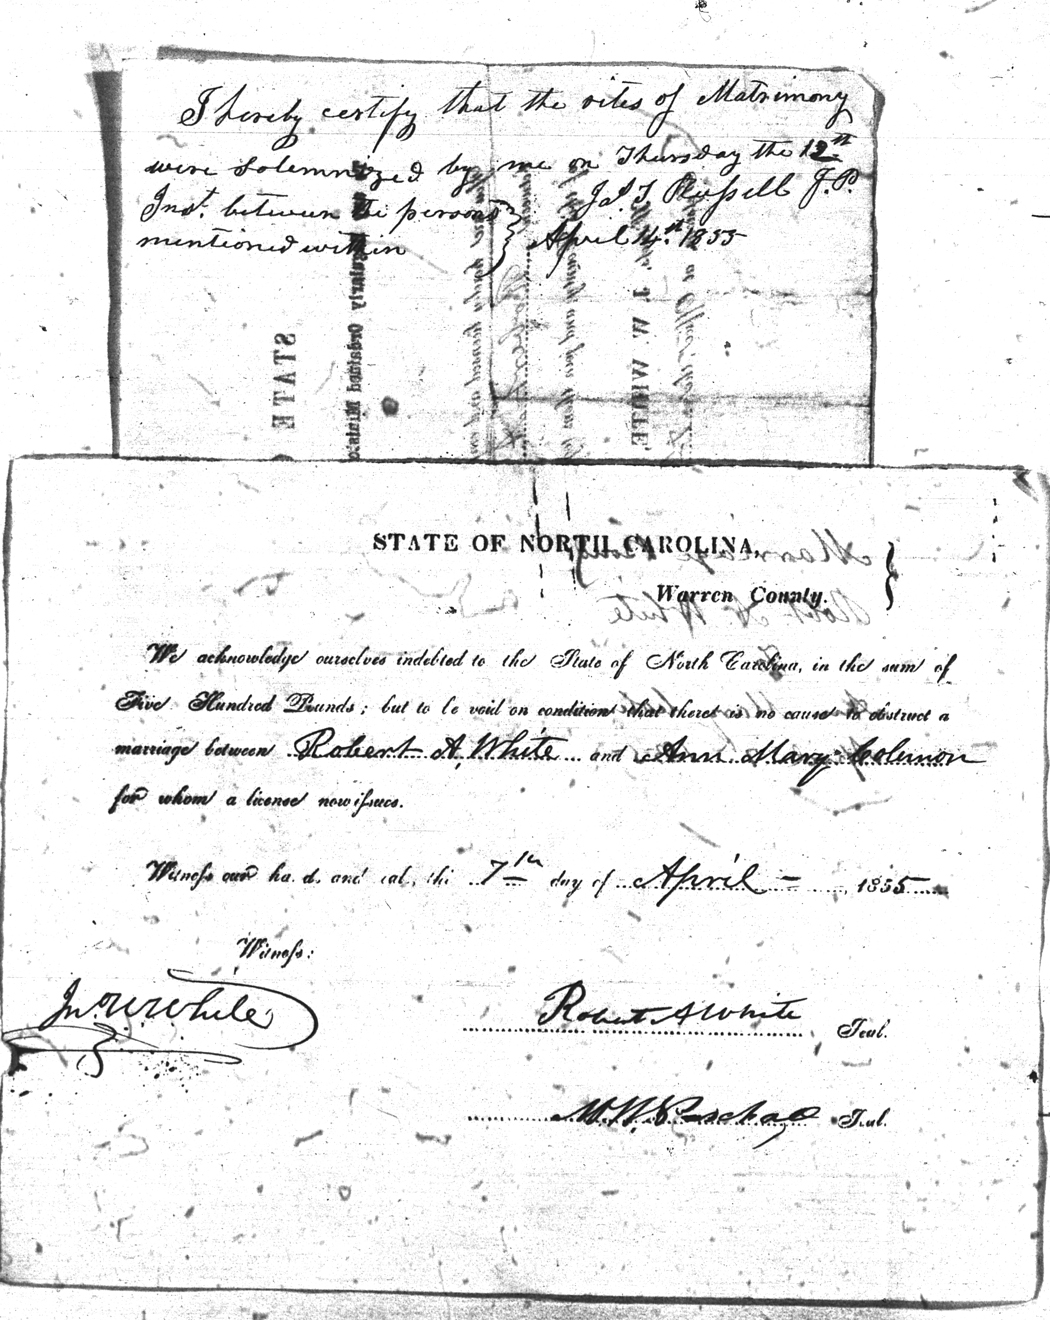 I hereby certify that the rites of Matrimony
were Solemnized by me on Thursday the 12th
Inst. between the persons
mentioned within
Jas T Russell J.P.
April 14th 1855
STATE
T. W. WHITE,
STATE OF NORTH CAROLINA,
Warren County.
We acknowledge ourselves indebted to the State of North Carolina, in the sum of
Five Hundred Pounds; but to be void on condition that there is no cause to obstruct a
marriage between Robert A. White and Ann Mary Colemon
for whom a license now issues.
Witness our ha d and eal, thi 7th day of April 1855
Witness:
Jno W White
Robert A White Seal.
M. W. Paschal Seal.